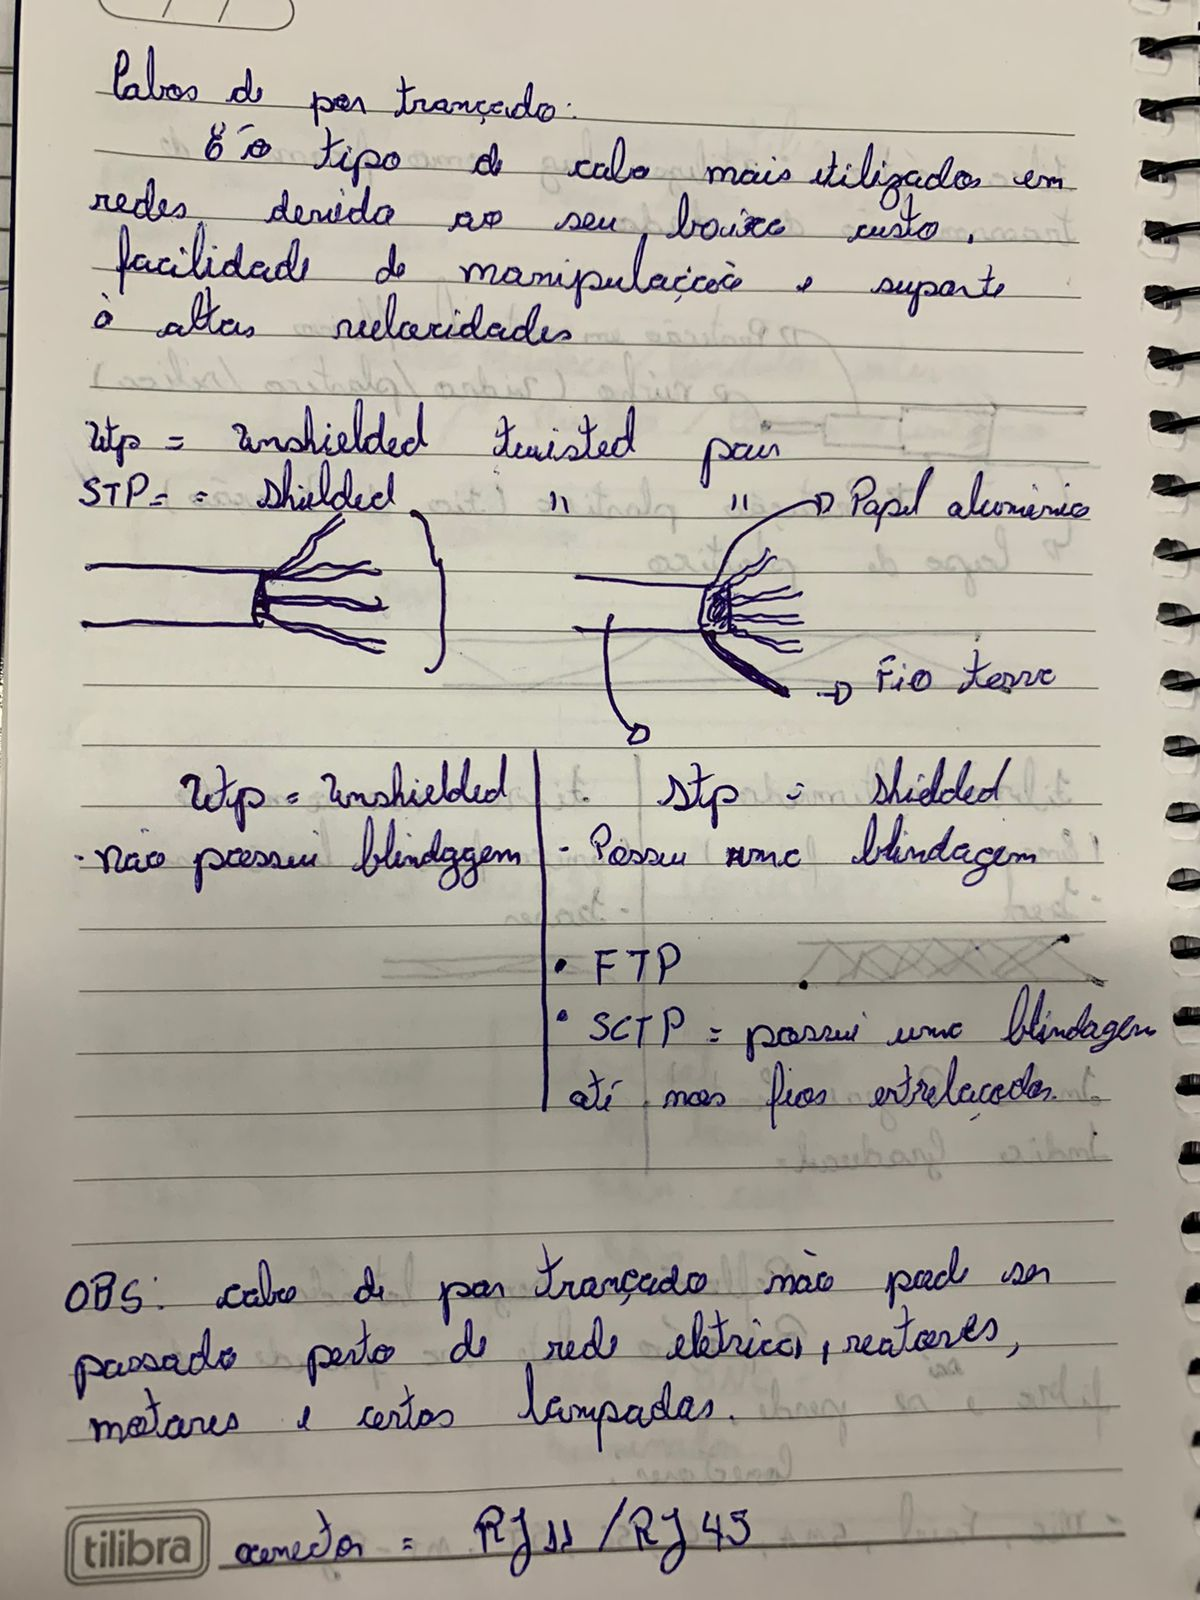 Cabos de par trançado:
É o tipo de cabo mais utilizados em
redes, devida ao seu baixo custo,
facilidade de manipulação e suporte
à altas velocidades
Utp = Unshielded twisted pair
STP = = Shielded " "
Papel alumínio
Fio terra
Utp = Unshielded
Stp = Shielded
- não possui blindaggem
- Possui uma blindagem
• FTP
• SCTP = possui uma blindagem
até nos fios entrelaçados.
OBS: cabo de par trançado não pode ser
passado perto de rede eletrica, reatores,
motores e certas lampadas.
tilibra
conector = RJ11 / RJ45